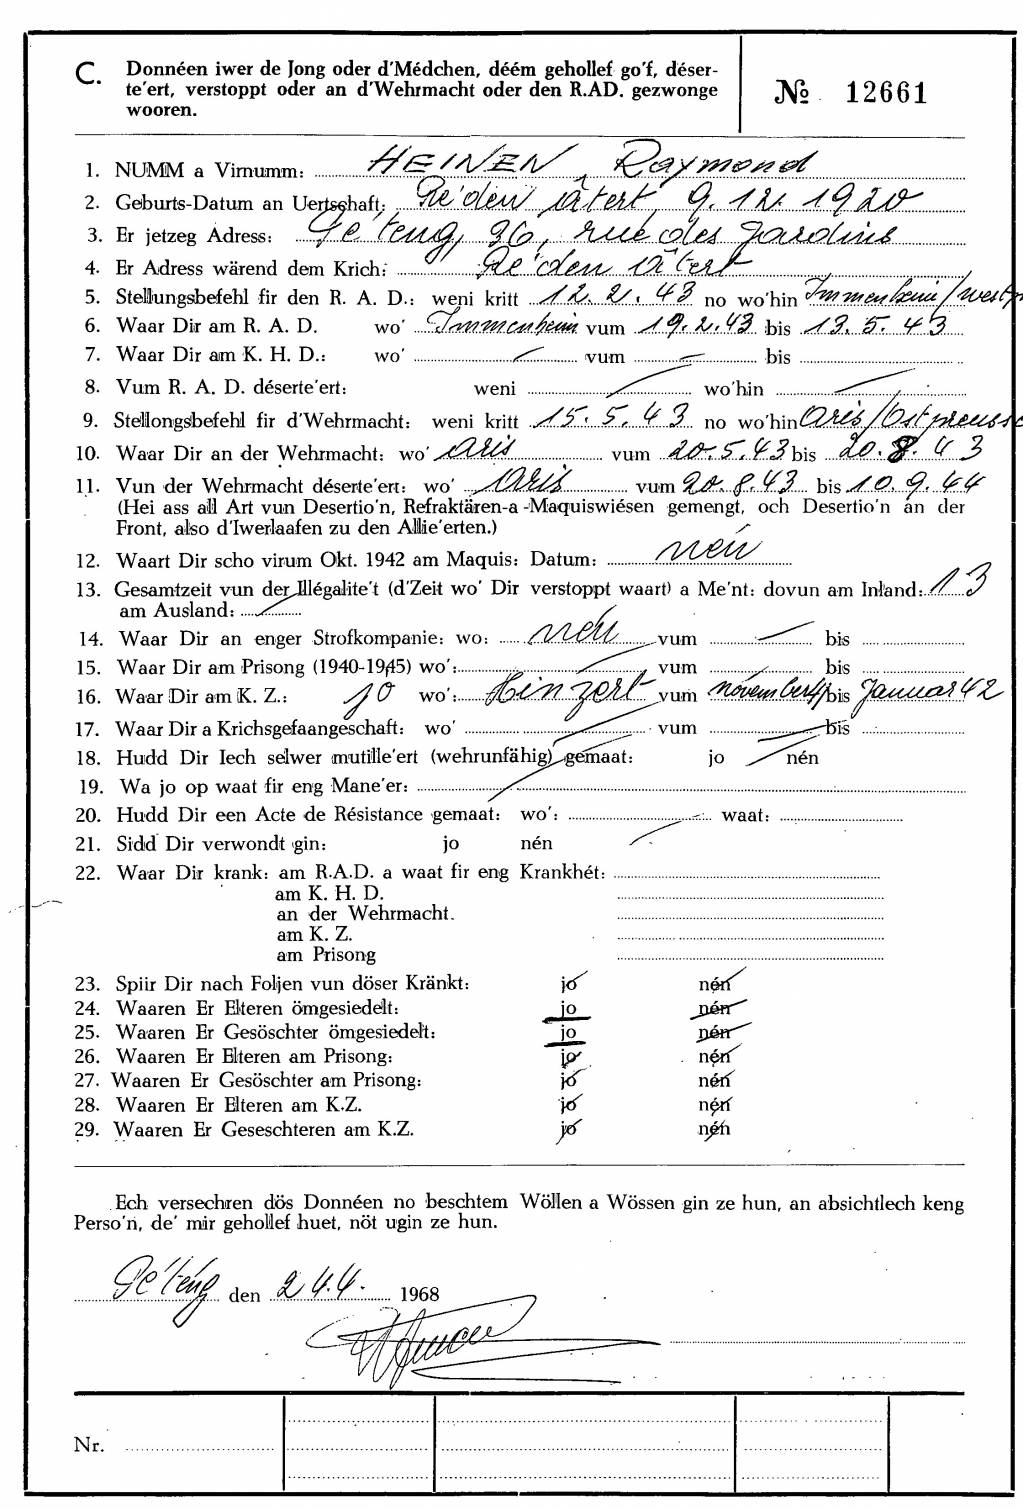 C. Donnéen iwer de Jong oder d'Médchen, déém gehollef go'f, déser-
te'ert, verstoppt oder an d'Wehrmacht oder den R.AD. gezwonge
wooren.
№ 12661
1. NUMM a Virnumm: HEINEN, Raymond
2. Geburts-Datum an Uertschaft: Re'den Atert, 9.12.1920
3. Er jetzeg Adress: Pe'teng, 36, rue des Jardins
4. Er Adress wärend dem Krich: Re'den Atert
5. Stellungsbefehl fir den R. A. D.: weni kritt 12.2.43 no wo'hin Immenheim/westpr
6. Waar Dir am R. A. D. wo' Immenheim vum 19.2.43 bis 13.5.43
7. Waar Dir am K. H. D.: wo' — vum — bis
8. Vum R. A. D. déserte'ert: weni — wo'hin —
9. Stellongsbefehl fir d'Wehrmacht: weni kritt 15.5.43 no wo'hin Aris/Ostpreusse
10. Waar Dir an der Wehrmacht: wo' Aris vum 20.5.43 bis 20.8.43
11. Vun der Wehrmacht déserte'ert: wo' Aris vum 20.8.43 bis 10.9.44
(Hei ass all Art vun Desertio'n, Refraktären-a-Maquiswiésen gemengt, och Desertio'n an der
Front, also d'Iwerlaafen zu den Allie'erten.)
12. Waart Dir scho virum Okt. 1942 am Maquis: Datum: nén
13. Gesamtzeit vun der Illégalite't (d'Zeit wo' Dir verstoppt waart) a Me'nt: dovun am Inland: 13
am Ausland: —
14. Waar Dir an enger Strofkompanie: wo: nén vum — bis
15. Waar Dir am Prisong (1940-1945) wo': — vum — bis
16. Waar Dir am K. Z.: jo wo': Hinzert vum november 41 bis Januar 42
17. Waar Dir a Krichsgefaangeschaft: wo' — vum — bis
18. Hudd Dir Iech selwer mutille'ert (wehrunfähig) gemaat: jo — nén
19. Wa jo op waat fir eng Mane'er: —
20. Hudd Dir een Acte de Résistance gemaat: wo': waat:
21. Sidd Dir verwondt gin: jo nén —
22. Waar Dir krank: am R.A.D. a waat fir eng Krankhét:
am K. H. D.
an der Wehrmacht.
am K. Z.
am Prisong
23. Spiir Dir nach Foljen vun döser Kränkt: jo nén
24. Waaren Er Elteren ömgesiedelt: jo nén
25. Waaren Er Gesöschter ömgesiedelt: jo nén
26. Waaren Er Elteren am Prisong: jo nén
27. Waaren Er Gesöschter am Prisong: jo nén
28. Waaren Er Elteren am K.Z. jo nén
29. Waaren Er Geseschteren am K.Z. jo nén
Ech versechren dös Donnéen no beschtem Wöllen a Wössen gin ze hun, an absichtlech keng
Perso'n, de' mir gehollef huet, nöt ugin ze hun.
Pe'teng den 24.4. 1968
Nr.